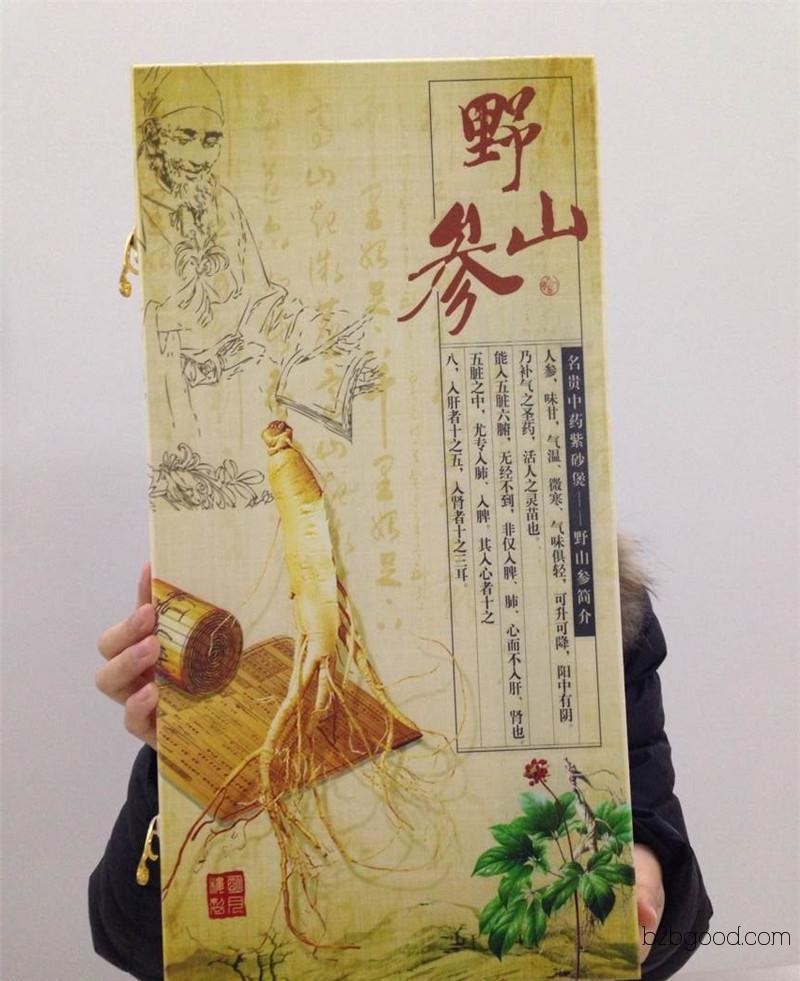 野
山
参
名贵中药紫砂煲——野山参简介
人参，味甘，气温、微寒、气味俱轻，可升可降，阳中有阴，
乃补气之圣药，活人之灵苗也。
能入五脏六腑，无经不到，非仅入脾、肺、心而不入肝、肾也。
五脏之中，尤专入肺、入脾。其入心者十之
八，入肝者十之五，入肾者十之三耳。
b2bgood.com